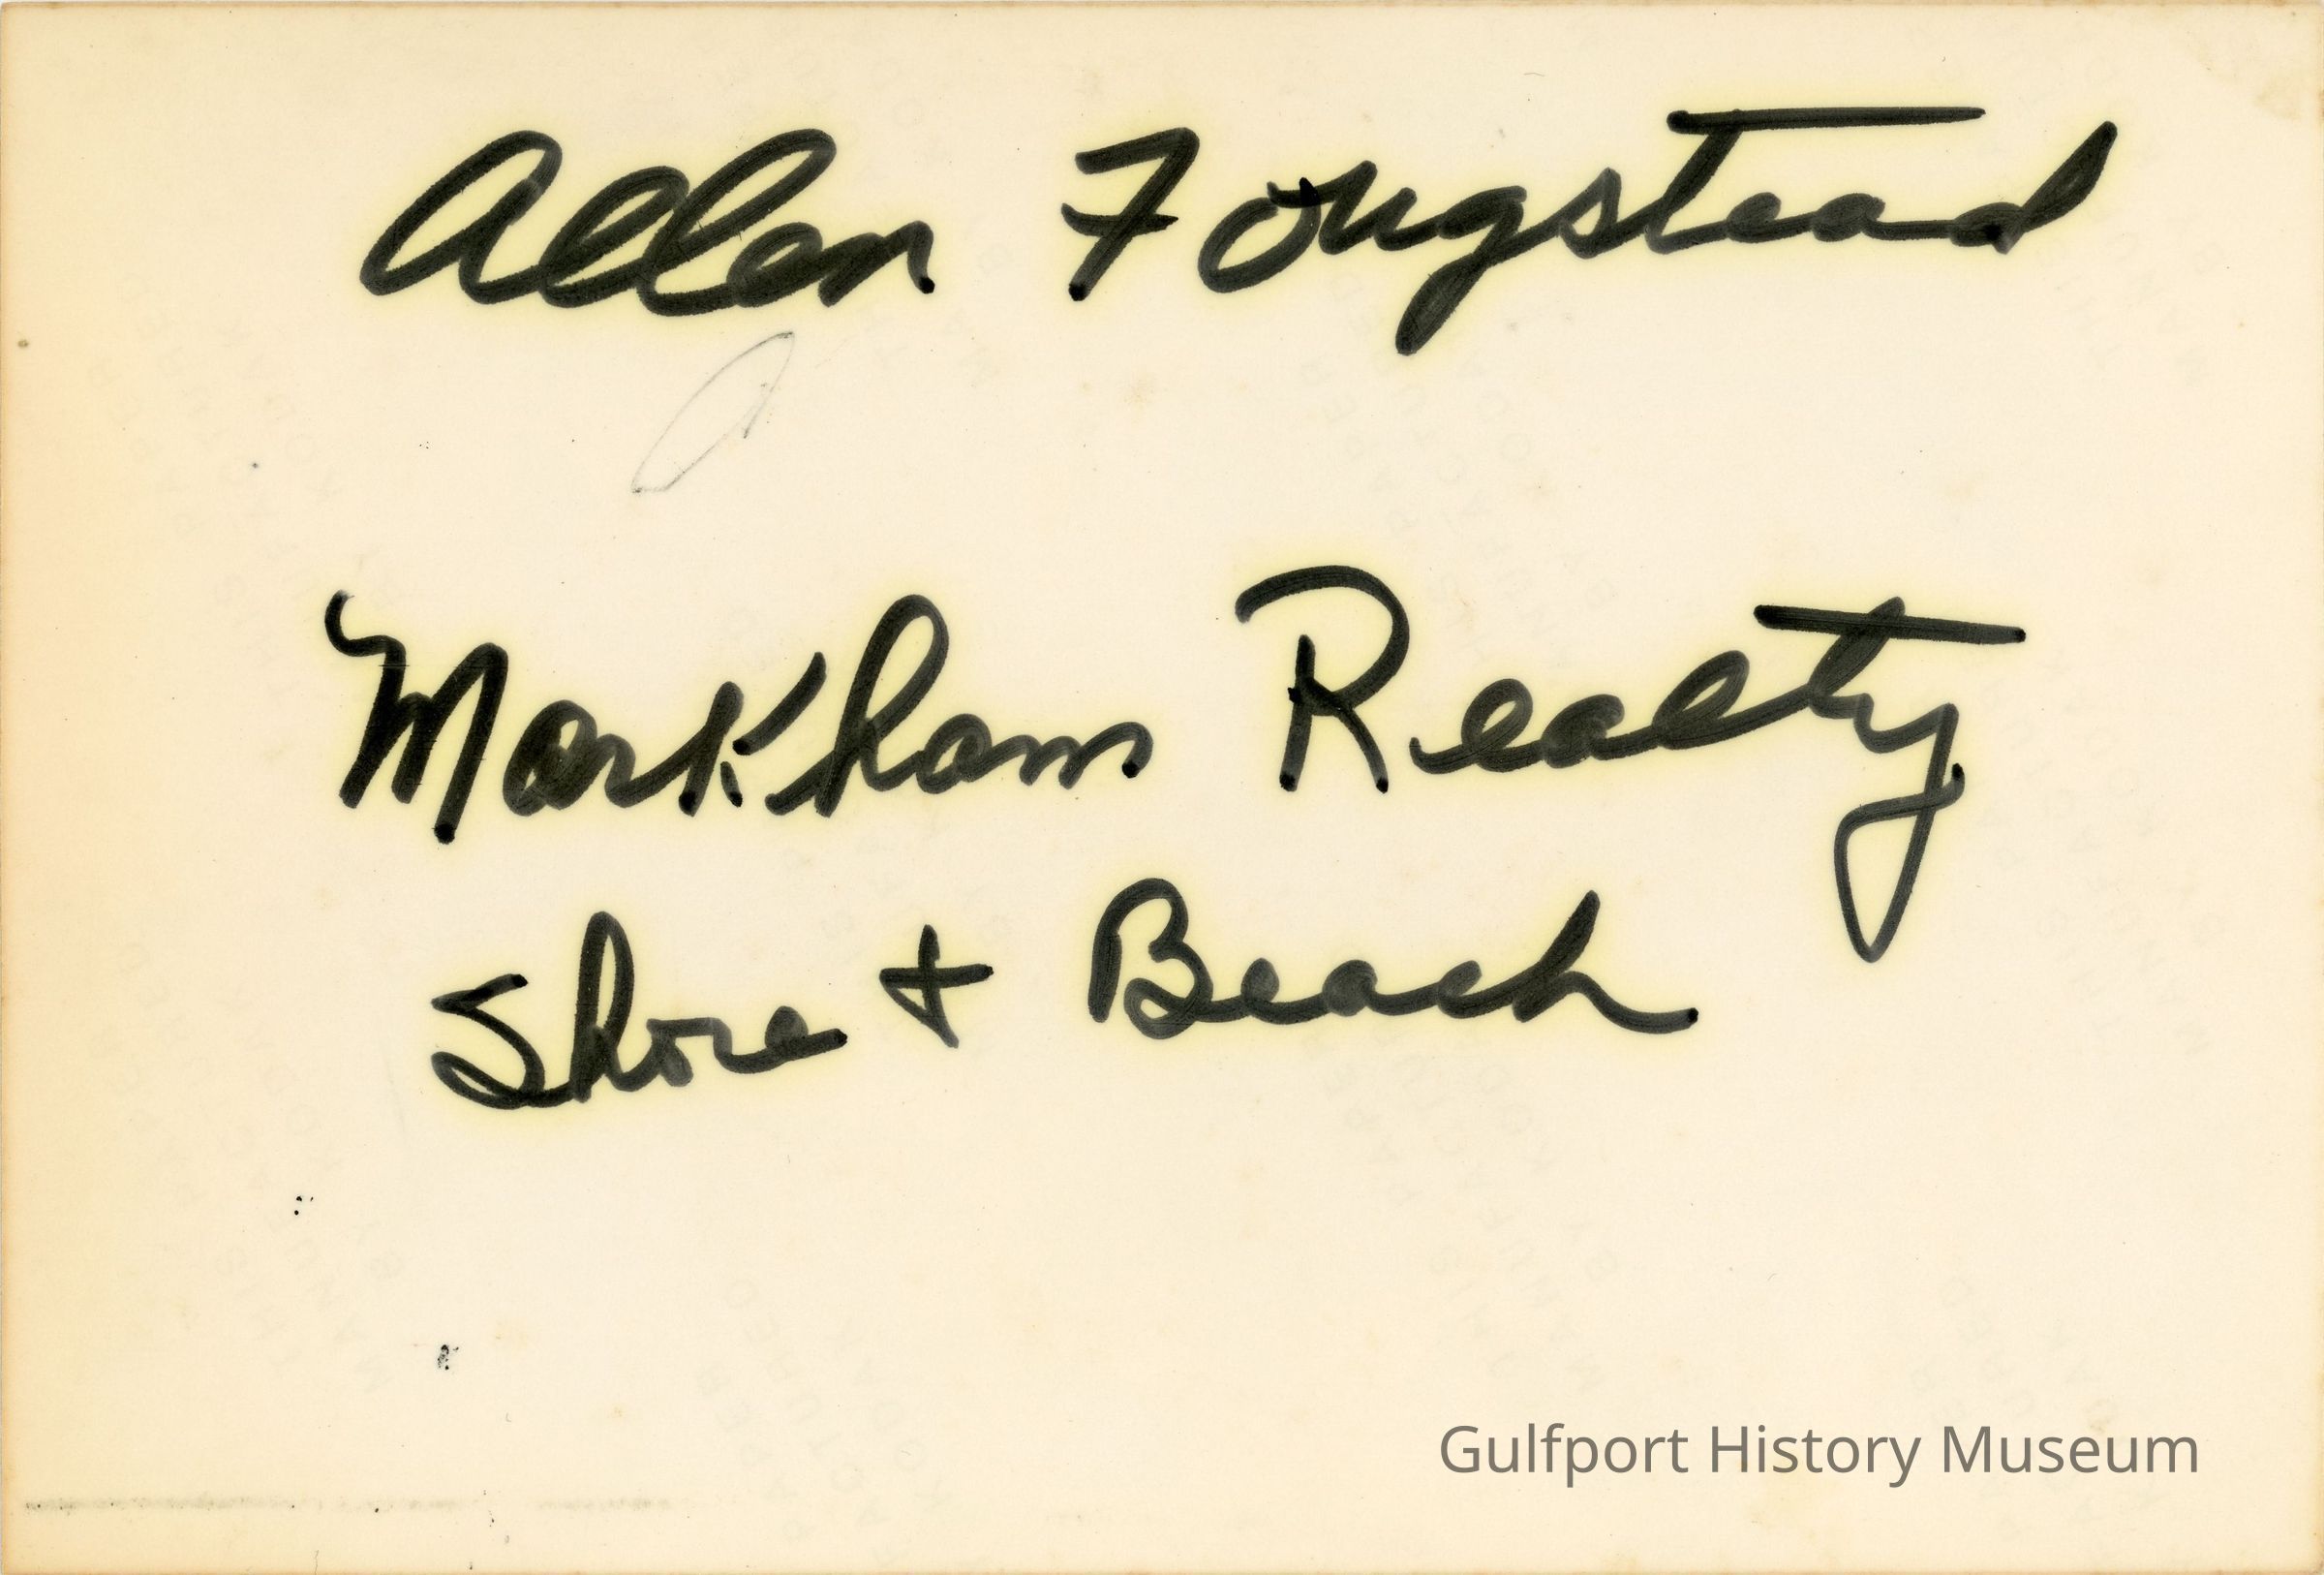 Allen Fongstead
Markham Realty
Shore + Beach
Gulfport History Museum